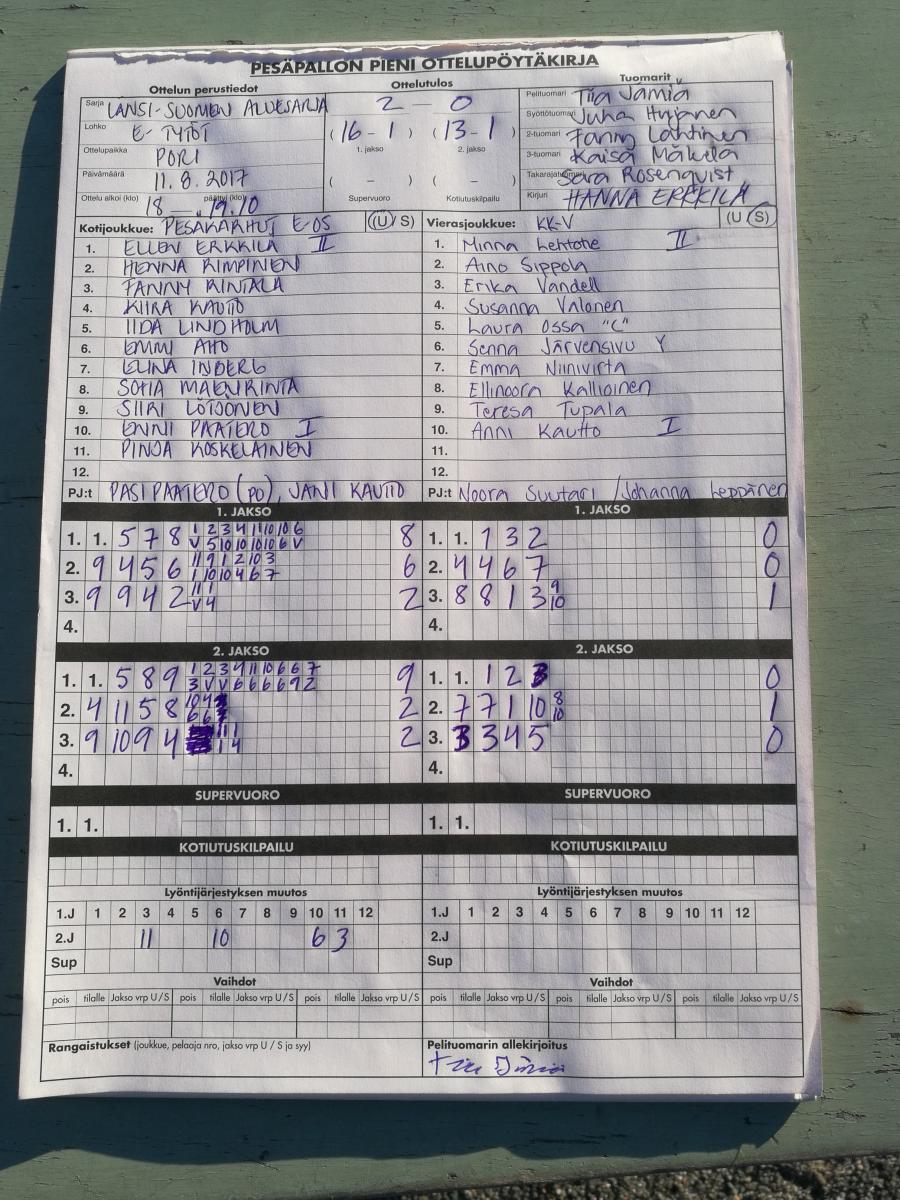 PESÄPALLON PIENI OTTELUPÖYTÄKIRJA
Ottelun perustiedot
Sarja LÄNSI-SUOMEN ALUESARJA
Lohko E-TYTÖT
Ottelupaikka PORI
Päivämäärä 11.8.2017
Ottelu alkoi (klo) 18 päättyi (klo) 19.10
Ottelutulos
2 – 0
(16 – 1) (13 – 1)
1. jakso 2. jakso
( – ) ( – )
Supervuoro Kotiutuskilpailu
Tuomarit
Pelituomari Tiia Jämiä
Syöttötuomari Juha Hyppänen
2-tuomari Fanny Lahtinen
3-tuomari Kaisa Mäkelä
Takarajatuomari Sara Rosenqvist
Kirjuri HANNA ERKKILÄ
Kotijoukkue: PESÄKARHUT E-05 (U/S)
1. ELLEN ERKKILÄ II
2. HENNA RIMPINEN
3. FANNY RINTALA
4. KIIRA KAUTTO
5. IIDA LINDHOLM
6. EMMI AHO
7. ELINA INBERG
8. SOFIA MÄENRINTA
9. SIIRI LÖTJÖNEN
10. ENNI PAATERO I
11. PINJA KOSKELAINEN
12.
PJ:t PASI PAATERO (PO), JANI KAUTTO
Vierasjoukkue: KK-V (U/S)
1. Minna Lehtohe II
2. Aino Sippola
3. Erika Vandell
4. Susanna Valonen
5. Laura Ossa "C"
6. Senna Järvensivu Y
7. Emma Niinivirta
8. Ellinoora Kallioinen
9. Teresa Tupala
10. Anni Kautto I
11.
12.
PJ:t Noora Suutari / Johanna Leppänen
1. JAKSO
1. 1. 5 7 8 1 2 3 4 11 10 10 6 8
V 5 10 10 10 10 6 V
2. 9 4 5 6 11 9 1 2 10 3 6
1 10 10 4 6 7
3. 9 9 4 2 11 1 2
V 4
4.
1. JAKSO
1. 1. 1 3 2 0
2. 4 4 6 7 0
3. 8 8 1 3 9 1
10
4.
2. JAKSO
1. 1. 5 8 9 1 2 3 9 11 10 6 6 7 9
3 V V 6 6 6 6 9 2
2. 4 11 5 8 10 4 2
6 6
3. 9 10 9 4 11 1 2
1 4
4.
2. JAKSO
1. 1. 1 2 3 0
2. 7 7 1 10 8 1
10
3. 3 3 4 5 0
4.
SUPERVUORO
1. 1.
SUPERVUORO
1. 1.
KOTIUTUSKILPAILU
KOTIUTUSKILPAILU
Lyöntijärjestyksen muutos
1.J 1 2 3 4 5 6 7 8 9 10 11 12
2.J 11 10 6 3
Sup
Lyöntijärjestyksen muutos
1.J 1 2 3 4 5 6 7 8 9 10 11 12
2.J
Sup
Vaihdot
pois tilalle Jakso vrp U/S pois tilalle Jakso vrp U/S pois tilalle Jakso vrp U/S
Vaihdot
pois tilalle Jakso vrp U/S pois tilalle Jakso vrp U/S pois tilalle Jakso vrp U/S
Rangaistukset (joukkue, pelaaja nro, jakso vrp U / S ja syy)
Pelituomarin allekirjoitus